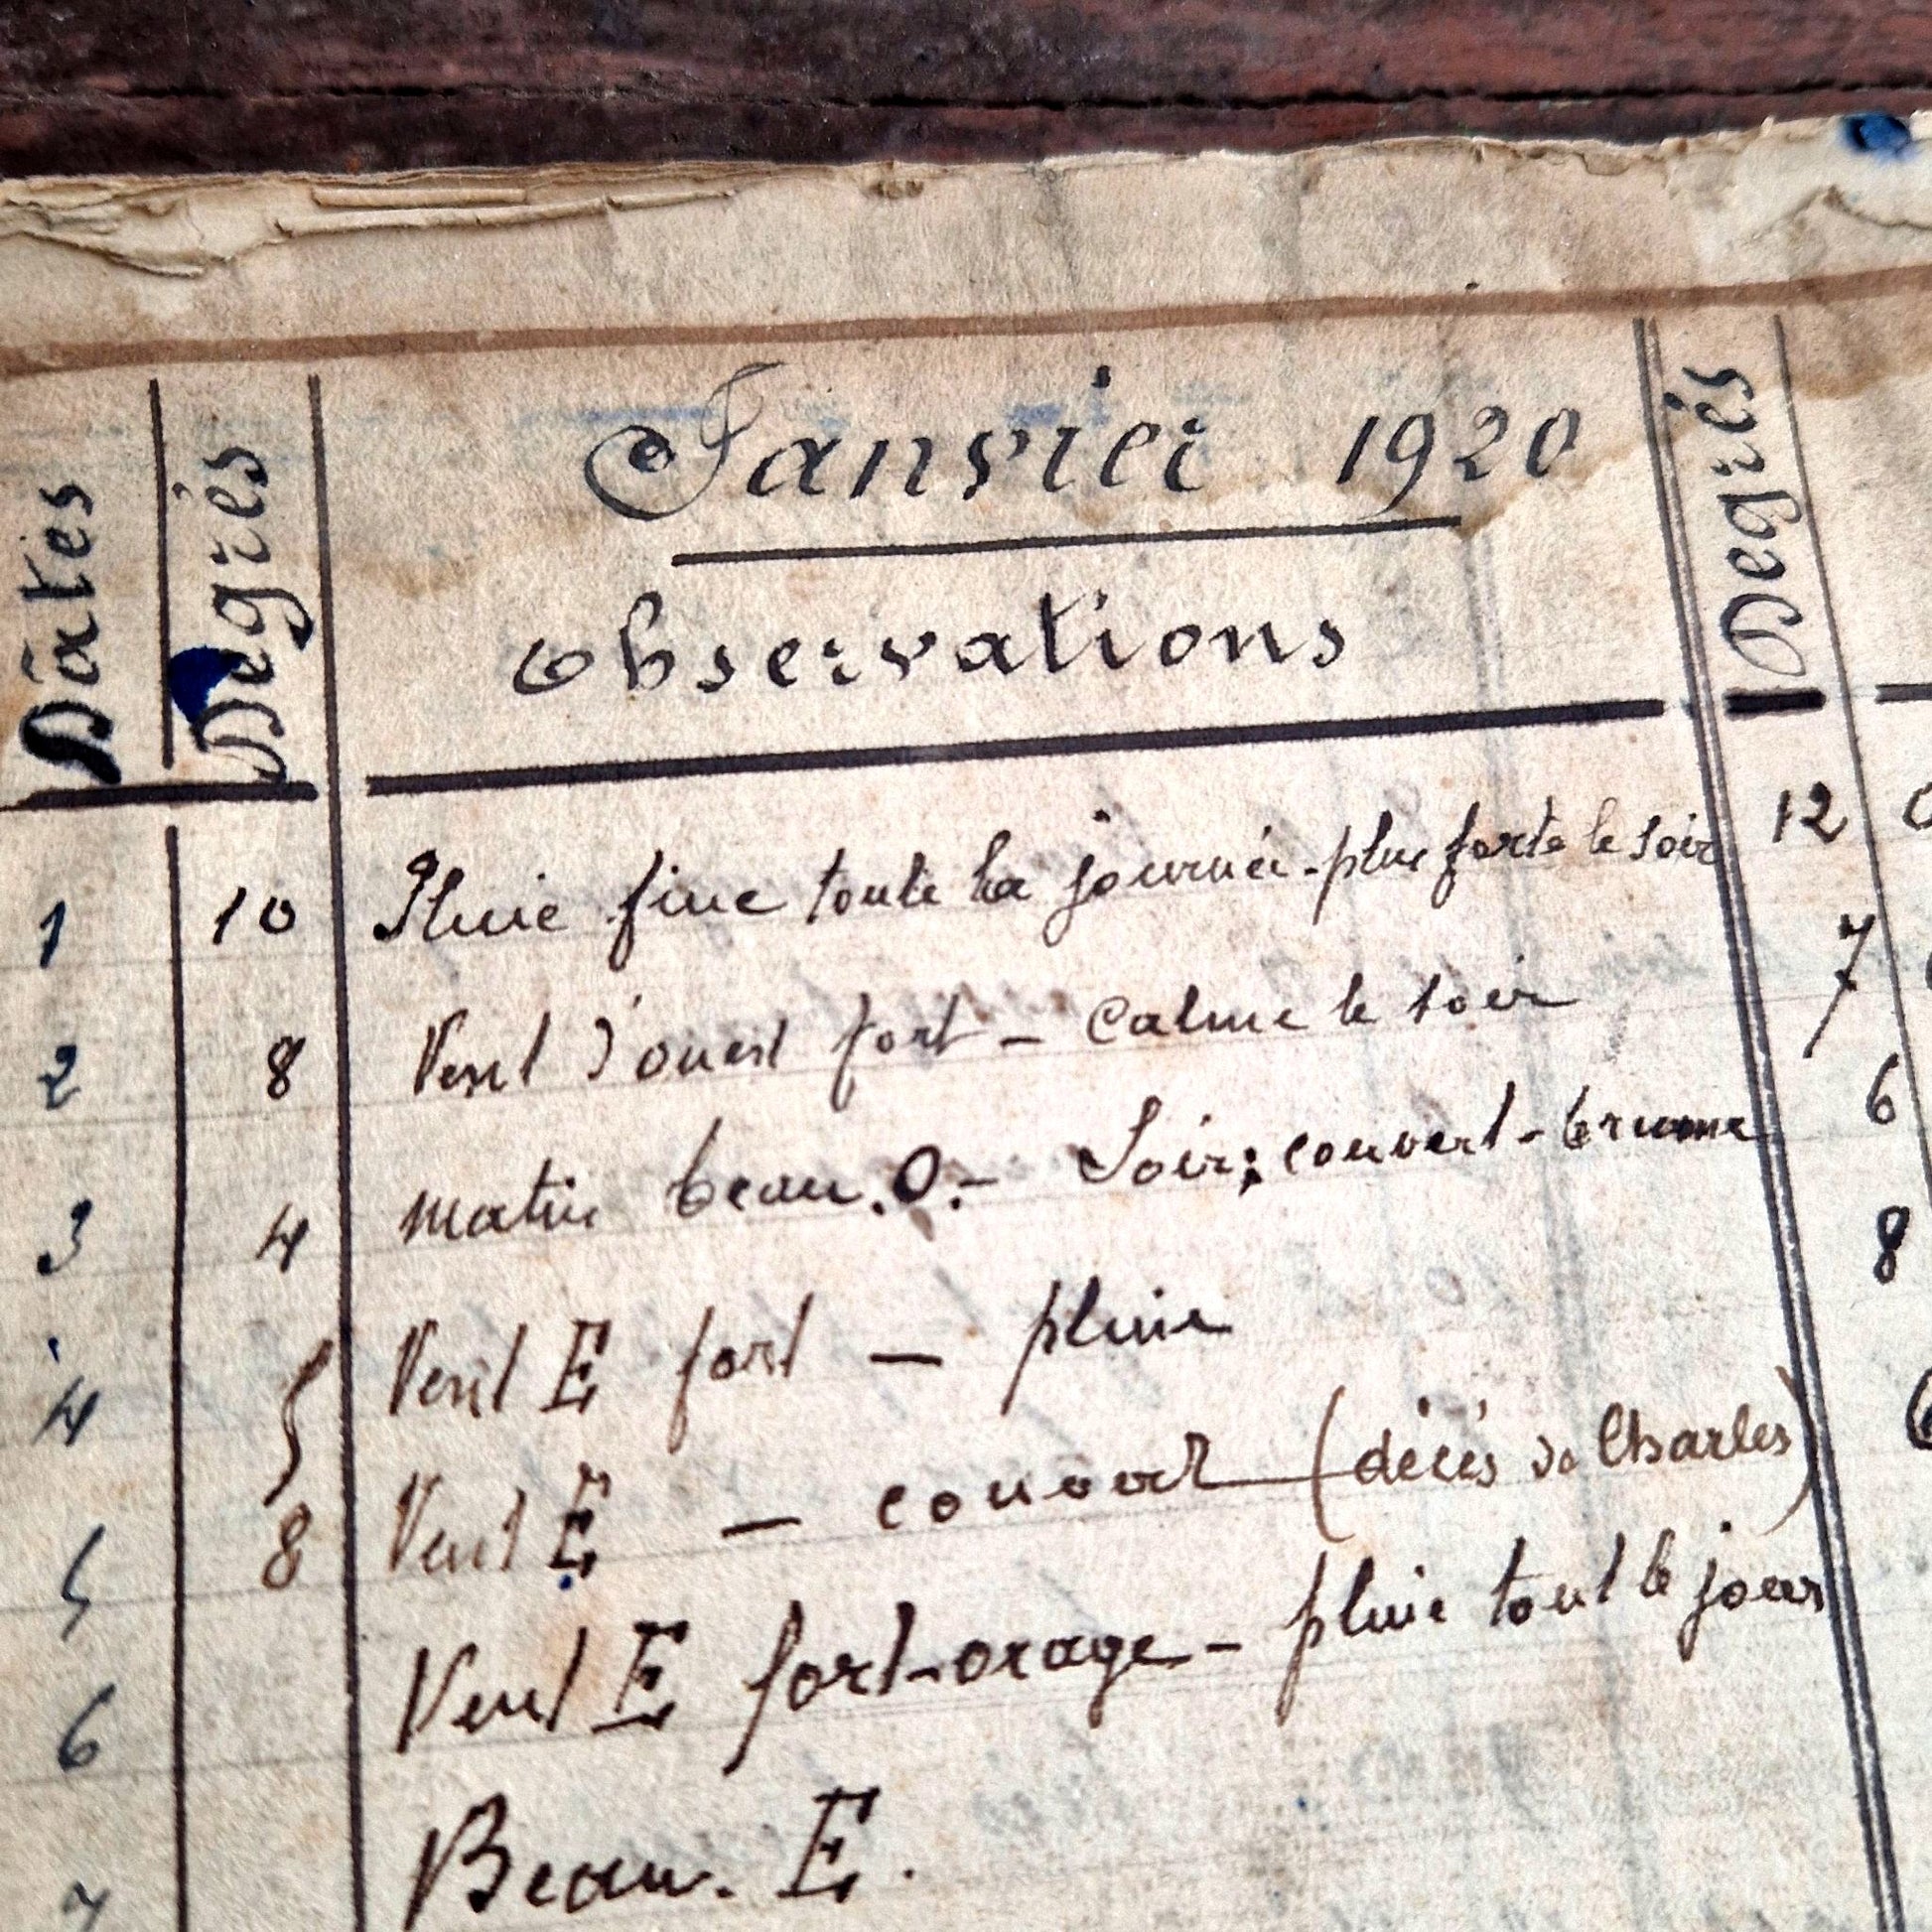 Janvier 1920
Dates Degrés Observations Degrés
1 10 Pluie fine toute la journée - plus forte le soir 12
2 8 Vent d'ouest fort - Calme le soir 7
3 4 matin beau. O. - Soir: couvert - brume 6
4 5 Vent E fort - pluie 8
5 8 Vent E - couvert (décès de Charles) 6
6 Vent E fort - orage - pluie tout le jour
7 Beau. E.